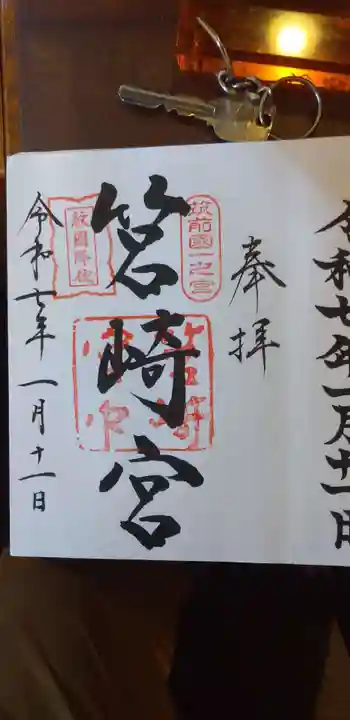 令和七年一月十一日
奉拝
筑前國一之宮
筥崎宮
敵國降伏
令和七年一月十一日